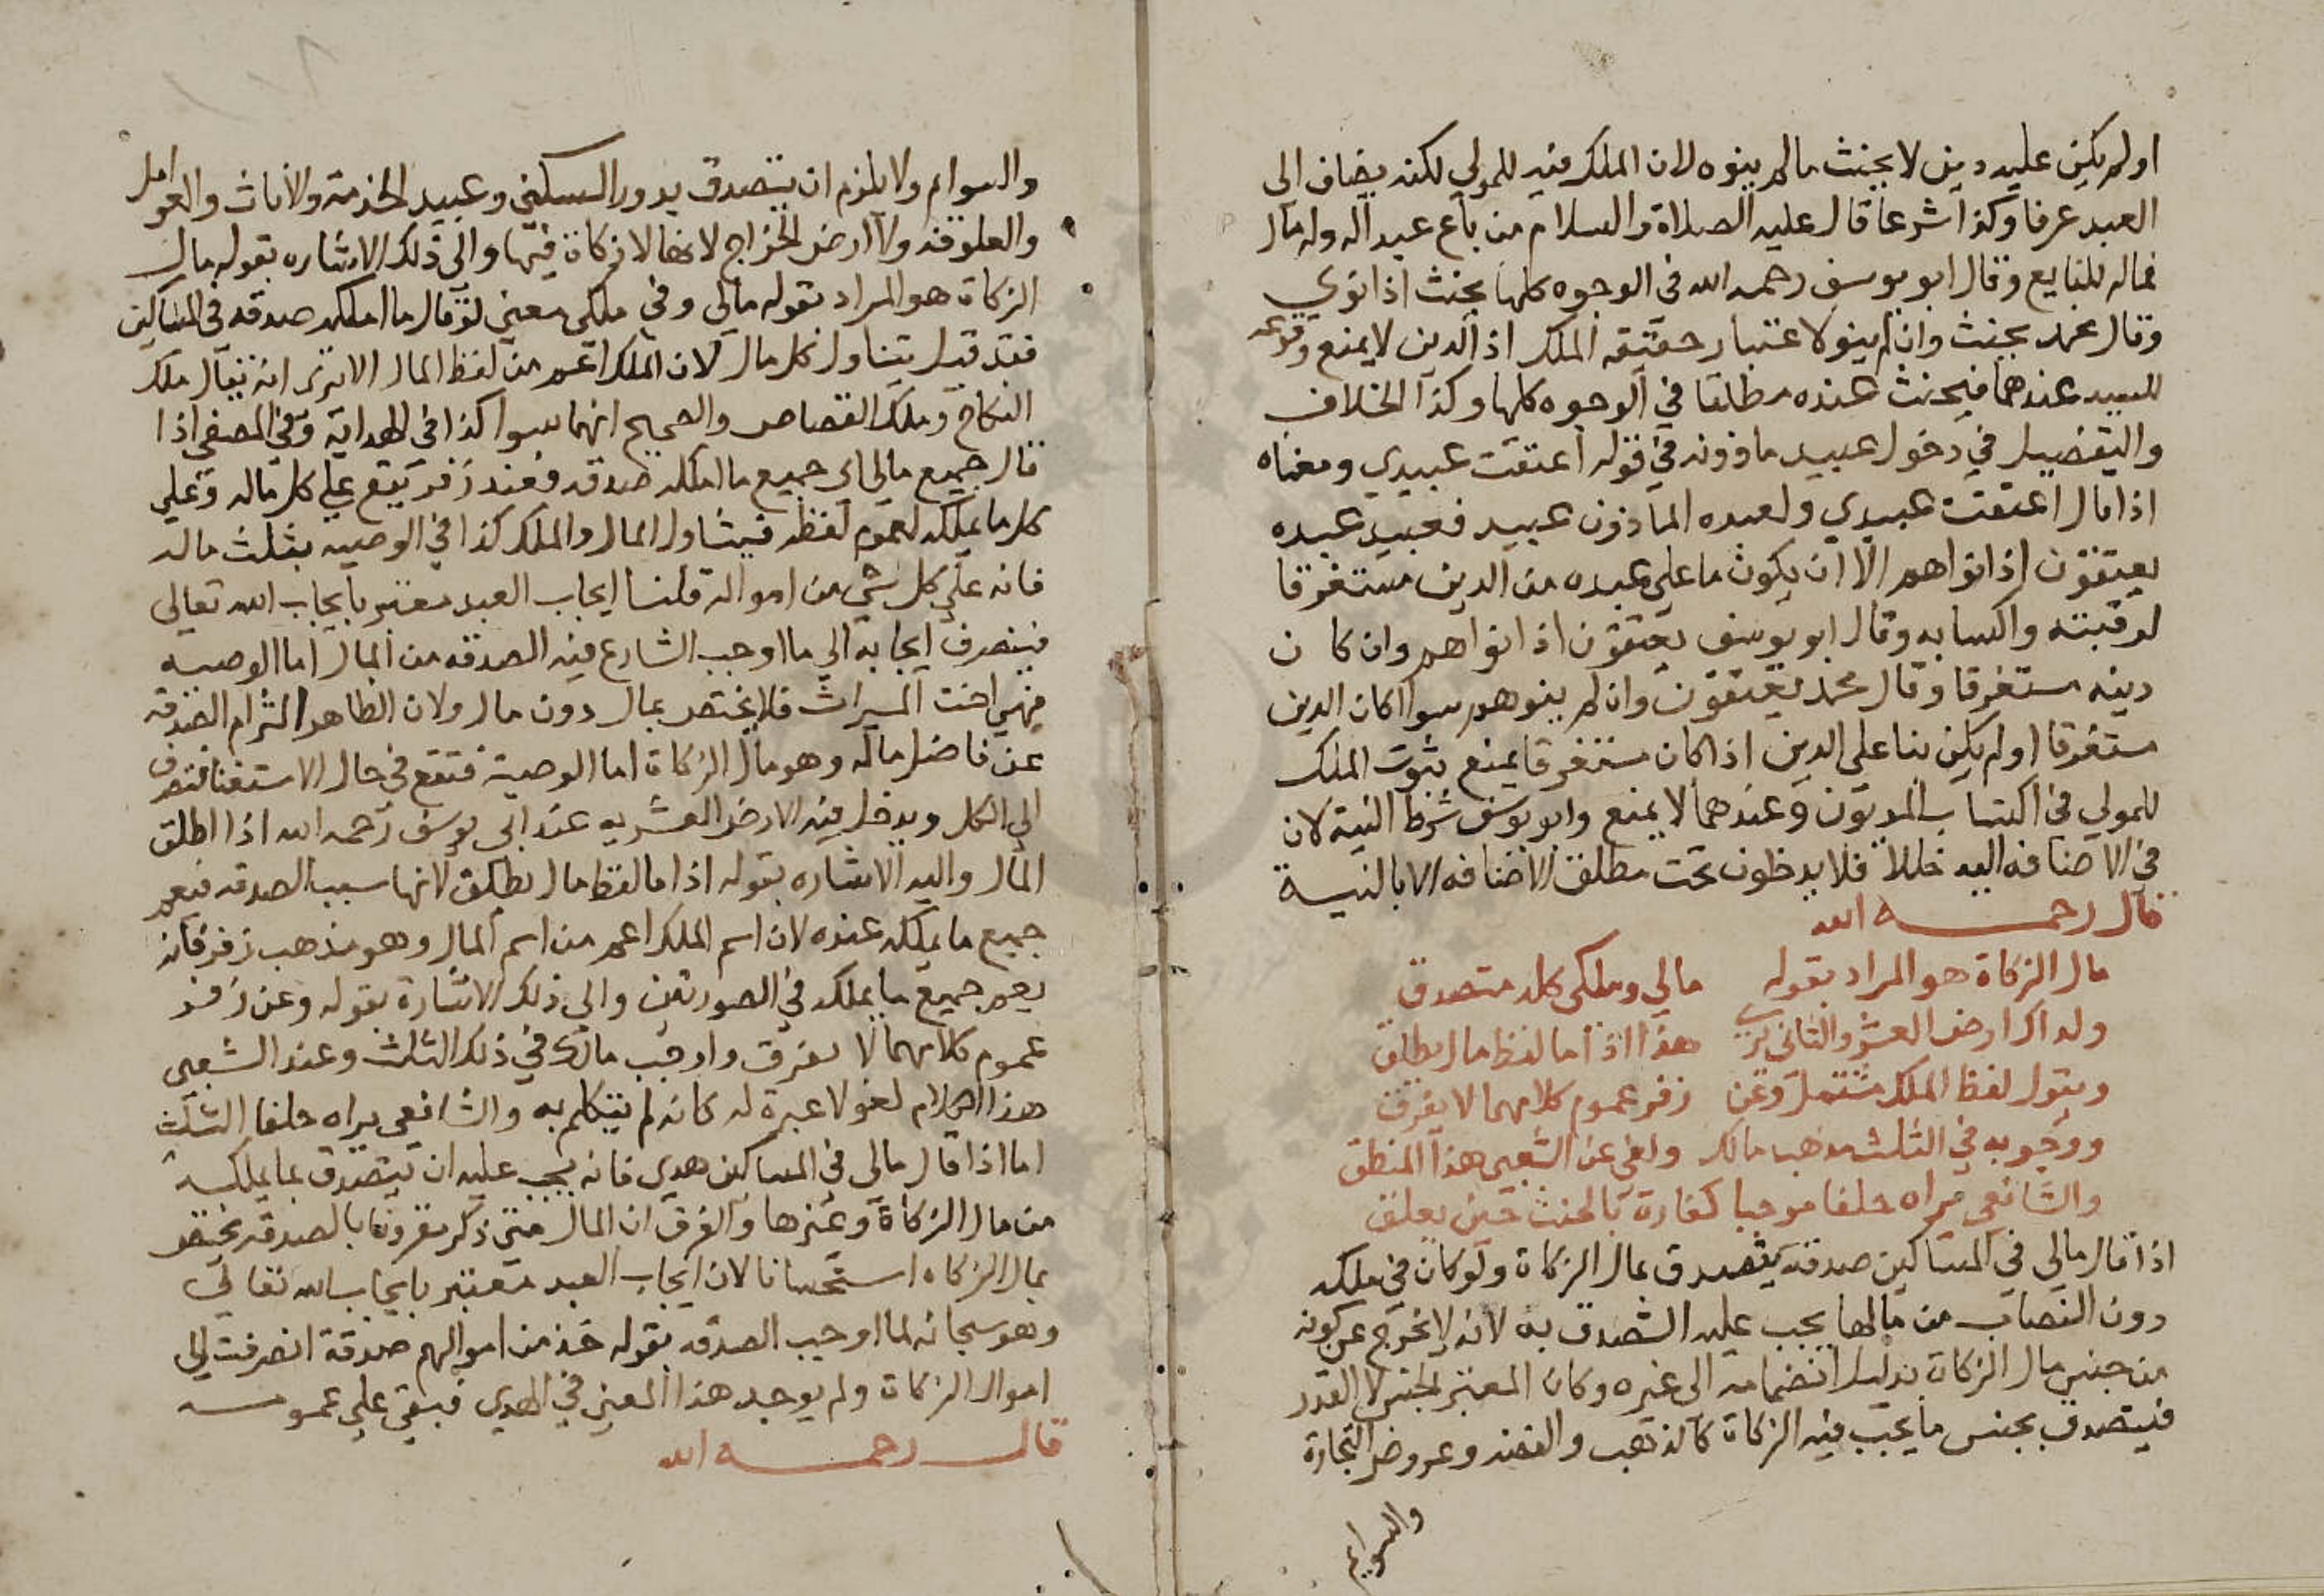 او لم يكن عليه دين لا يحنث مالم ينوه لان الملك فيه للمولي لكنه يضاف الى
العبد عرفا وكذا شرعا قال عليه الصلاة والسلام من باع عبدا له وله مال
فماله للبايع وقال ابو يوسف رحمه الله في الوجوه كلها يحنث اذا نوي
وقال محمد يحنث وان لم ينو لاعتبار حقيقة الملك اذ الدين لا يمنع وقوعه
للسيد عندهما فيحنث عنده مطلقا في الوجوه كلها وكذا الخلاف
والتفصيل في دخول عبيد ماذونه في قوله اعتقت عبيدي ومعناه
اذا قال اعتقت عبيدي ولعبده الماذون عبيد فعبيد عبده
يعتقون اذا نواهم الا ان يكون ما على عبده من الدين مستغرقا
لرقبته واكسابه وقال ابو يوسف يعتقون اذا نواهم وان كان
دينه مستغرقا وقال محمد يعتقون وان لم ينوهم سوا كان الدين
مستغرقا او لم يكن بنا على الدين اذا كان مستغرقا يمنع ثبوت الملك
للمولي في اكتساب المديون وعندهما لا يمنع وابو يوسف شرط النية لان
في الاضافه اليه خللا فلا يدخلون تحت مطلق الاضافه الا بالنية
قال رحمه الله
مال الزكاة هو المراد بقوله مالي وملكي كله متصدق
ولداك ارض العشر والثاني يرى هذا اذا ما لفظ مال يطلق
ويقول لفظ الملك مشتمل وعن زفر عموم كلامهما لا يفرق
ووجوبه في الثلث مذهب مالك ولغى عن الشعبي هذا المنطق
والشافعي يراه حلفا موجبا كفارة بالحنث حين يعلق
اذا قال مالي في المساكين صدقة يتصدق بمال الزكاة ولو كان في ملكه
دون النصاب من مالها يجب عليه التصدق به لانه لا يخرج عن كونه
من جنس مال الزكاة بدليل انضمامه الى غيره وكان المعتبر الجنس لا القدر
فيتصدق بجنس ما يجب فيه الزكاة كالذهب والفضه وعروض التجارة
والسوايم
والسوايم ولا يلزم ان يتصدق بدور السكنى وعبيد الخدمة والاثاث والعوامل
والعلوفه ولا ارض الخراج لانها لا زكاة فيها والى ذلك الاشاره بقوله مال
الزكاة هو المراد بقوله مالي وفي ملكي معنى لو قال ما املكه صدقه في المساكين
فقد قيل يتناول كل مال لان الملك اعم من لفظ المال الا ترى انه يقال ملك
النكاح وملك القصاص والصحيح انهما سوا كذا في الهداية وفي المصفى اذا
قال جميع مالي اي جميع ما املكه صدقه فعند زفر يقع علي كل ماله وعلى
كل ما يملكه لعموم لفظه فيتناول المال والملك كذا في الوصيه بثلث ماله
فانه على كل شي من امواله قلنا ايجاب العبد معتبر بايجاب الله تعالى
فينصرف ايجابه الي ما اوجب الشارع فيه الصدقه من المال اما الوصيه
فهي اخت الميراث فلا يختص بمال دون مال ولان الظاهر التزام الصدقة
عن فاضل ماله وهو مال الزكاة اما الوصية فتقع في حال الاستغنا فتصرف
الى الكل ويدخل فيه الارض العشريه عند ابي يوسف رحمه الله اذا اطلق
المال واليه الاشاره بقوله اذا ما لفظ مال يطلق لانها سبب الصدقه فيعم
جميع ما يملكه عنده لان اسم الملك اعم من اسم المال وهو مذهب زفر فانه
يعم جميع ما يملكه في الصورتين والي ذلك الاشارة بقوله وعن زفر
عموم كلامهما لا يفرق واوجب مالك في ذلك الثلث وعند الشعبي
هذا الكلام لغو لا عبرة له كانه لم يتكلم به والشافعي يراه حلفا الثلث
اما اذا قال مالي في المساكين هدي فانه يجب عليه ان يتصدق بما يملكه
من مال الزكاة وغيرها والفرق ان المال متى ذكر مقرونا بالصدقه يختص
بمال الزكاه استحسانا لان ايجاب العبد معتبر بايجاب الله تعالي
وهو سبحانه لما اوجب الصدقه بقوله خذ من اموالهم صدقة انصرفت الى
اموال الزكاة ولم يوجد هذا المعنى في الهدي فبقي علي عمومه
قال رحمه الله